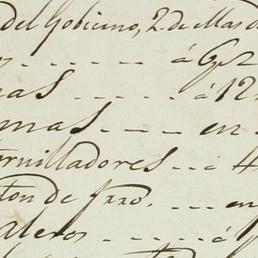 del Gobierno, 2. de Mas
á 6 p 2
as - - - - - á 12
mas - - - - en
rnilladores - - á 4
ton de faro. - - - en
aleros - - - - á